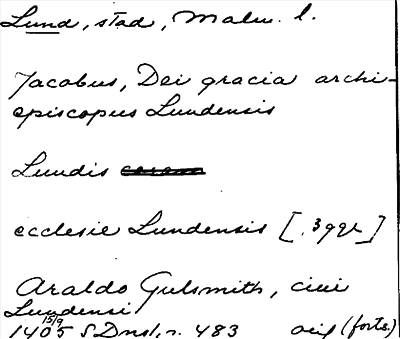 Lund, stad, Malm. l.
Jacobus, Dei gracia archi-
episcopus Lundensis
Lundis
ecclesie Lundensis [. 3 ggr]
Araldo Gulsmith, ciui
Lundensi
1405 15/9 SDns1, n. 483 orig (forts.)